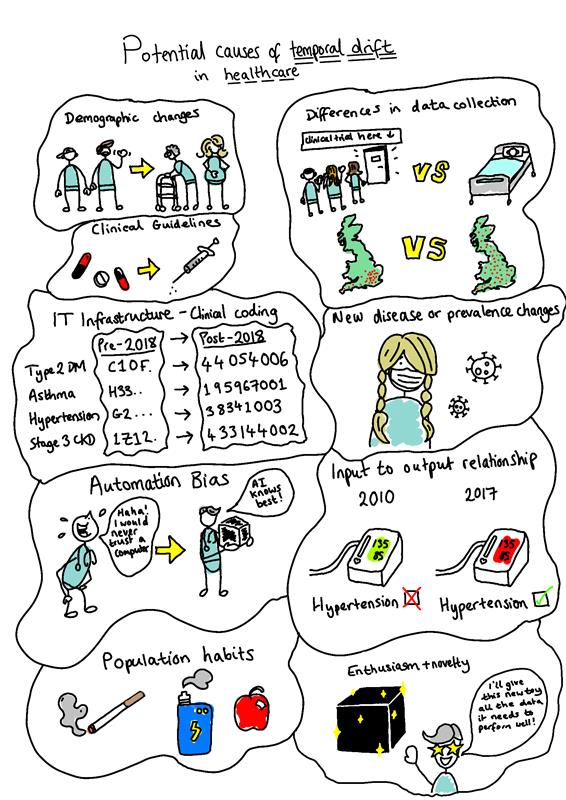 Potential causes of temporal drift
in healthcare
Demographic changes
Clinical Guidelines
IT Infrastructure - Clinical coding
Pre-2018 → Post-2018
Type 2 DM C10F. → 44054006
Asthma H33.. → 195967001
Hypertension G2... → 38341003
Stage 3 CKD 1Z12. → 433144002
Automation Bias
Haha!
I would
never
trust a
computer
AI
knows
best!
Population habits
Differences in data collection
clinical trial here ↓
VS
VS
New disease or prevalence changes
Input to output relationship
2010 2017
135
85
135
85
Hypertension ☒ Hypertension ☑
Enthusiasm + novelty
I'll give
this new toy
all the data
it needs to
perform well!